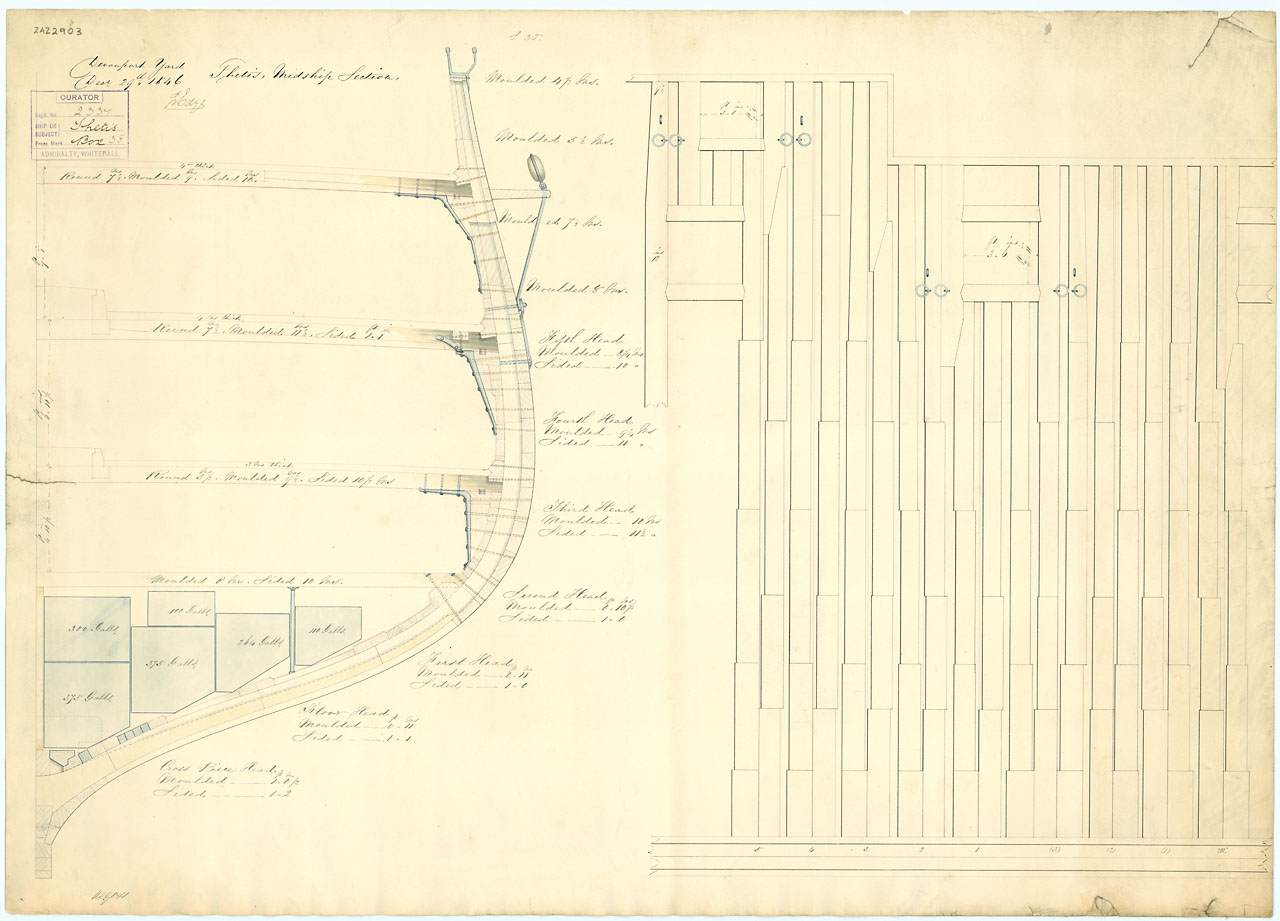 ZAZ2903
Devonport Yard
Decr 29th 1846
Thetis, Midship Section.
CURATOR
Regd. No. 2337
SHIP OR SUBJECT Thetis
Press Mark Box 35
ADMIRALTY, WHITEHALL
Moulded 4½ Ins.
Moulded 5½ Ins.
4 Ins thick
Round 7½. Moulded 9. Sided
Moulded 7½ Ins.
Moulded 8 Ins.
4 Ins thick
Round 7½. Moulded 11½. Sided 1.1
Fifth Head
Moulded
Sided 10 "
Fourth Head
Moulded 9½ Ins
Sided 11 "
3 Ins thick
Round 5½. Moulded 9½. Sided 10½ Ins
Third Head
Moulded 10 Ins
Sided 11½ "
Moulded 8 Ins. Sided 10 Ins.
Second Head
Moulded 0.10½
Sided 1.0
380 Galls.
110 Galls.
375 Galls.
264 Galls.
110 Galls.
375 Galls.
First Head
Moulded 0.11
Sided 1.0
Floor Head
Moulded 0.11
Sided 1.1
Cross Piece Head
Moulded 1.0½
Sided 1.2
3.0
3.6
5 4 3 2 1 (3) (2) (1)